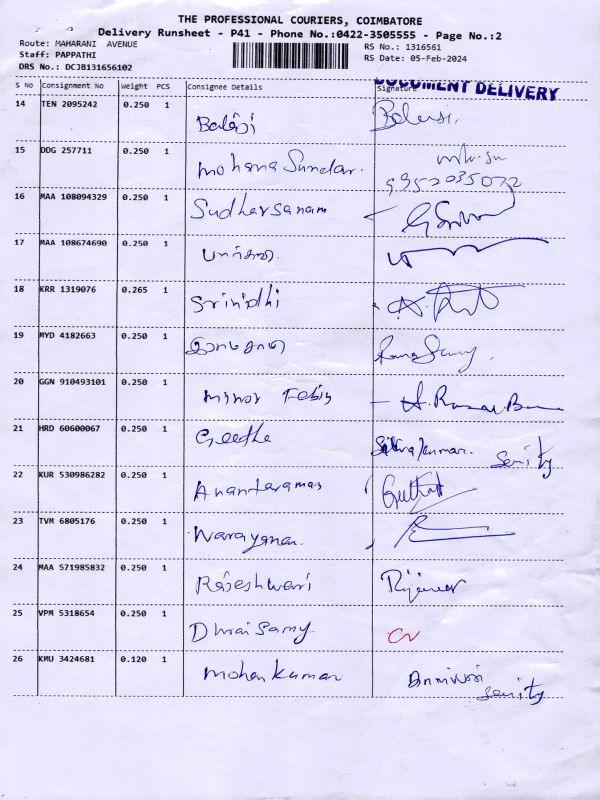 THE PROFESSIONAL COURIERS, COIMBATORE
Delivery Runsheet - P41 - Phone No.:0422-3505555 - Page No.:2
Route: MAHARANI AVENUE RS No.: 1316561
Staff: PAPPATHI RS Date: 05-Feb-2024
DRS No.: DCJB131656102
S No Consignment No Weight PCS Consignee Details Signature
DOCUMENT DELIVERY
14 TEN 2095242 0.250 1 Balaji
15 DDG 257711 0.250 1 Mohana Sundar.
9952035072
16 MAA 108094329 0.250 1 Sudharsanam
17 MAA 108674690 0.250 1
18 KRR 1319076 0.265 1 Srinidhi
19 MYD 4182663 0.250 1 இராமசாமி Ramasamy.
20 GGN 910493101 0.250 1 Minor Febin
21 HRD 60600067 0.250 1 Geetha Sivakumar.
22 KUR 530986282 0.250 1 Anantaraman
23 TVM 6805176 0.250 1 Narayanan.
24 MAA 571985832 0.250 1 Rajeshwari
25 VPM 5318654 0.250 1 Dhraisamy
26 KMU 3424681 0.120 1 Mohan kumar